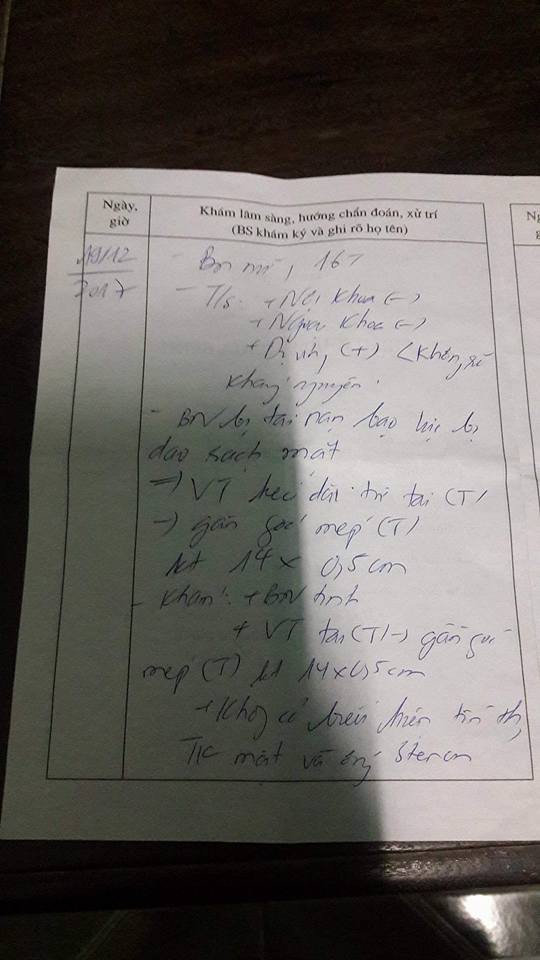 Ngày, giờ
Khám lâm sàng, hướng chẩn đoán, xử trí
(BS khám ký và ghi rõ họ tên)
19/12
2017
- BN nữ, 16T
- T/s: + Nội khoa (-)
+ Ngoại khoa (-)
+ Dị ứng (+) (không rõ
kháng nguyên
- BN bị tai nạn bạo lực bị
dao rạch mặt
=> VT kéo dài từ tai (T)
-> gần góc mép (T)
kt 14 x 0,5cm
- Khám: + BN tỉnh
+ VT tai (T) -> gần góc
mép (T) kt 14x0,5cm
+ Không có biểu hiện tổn th
TK mặt và ống Stenon